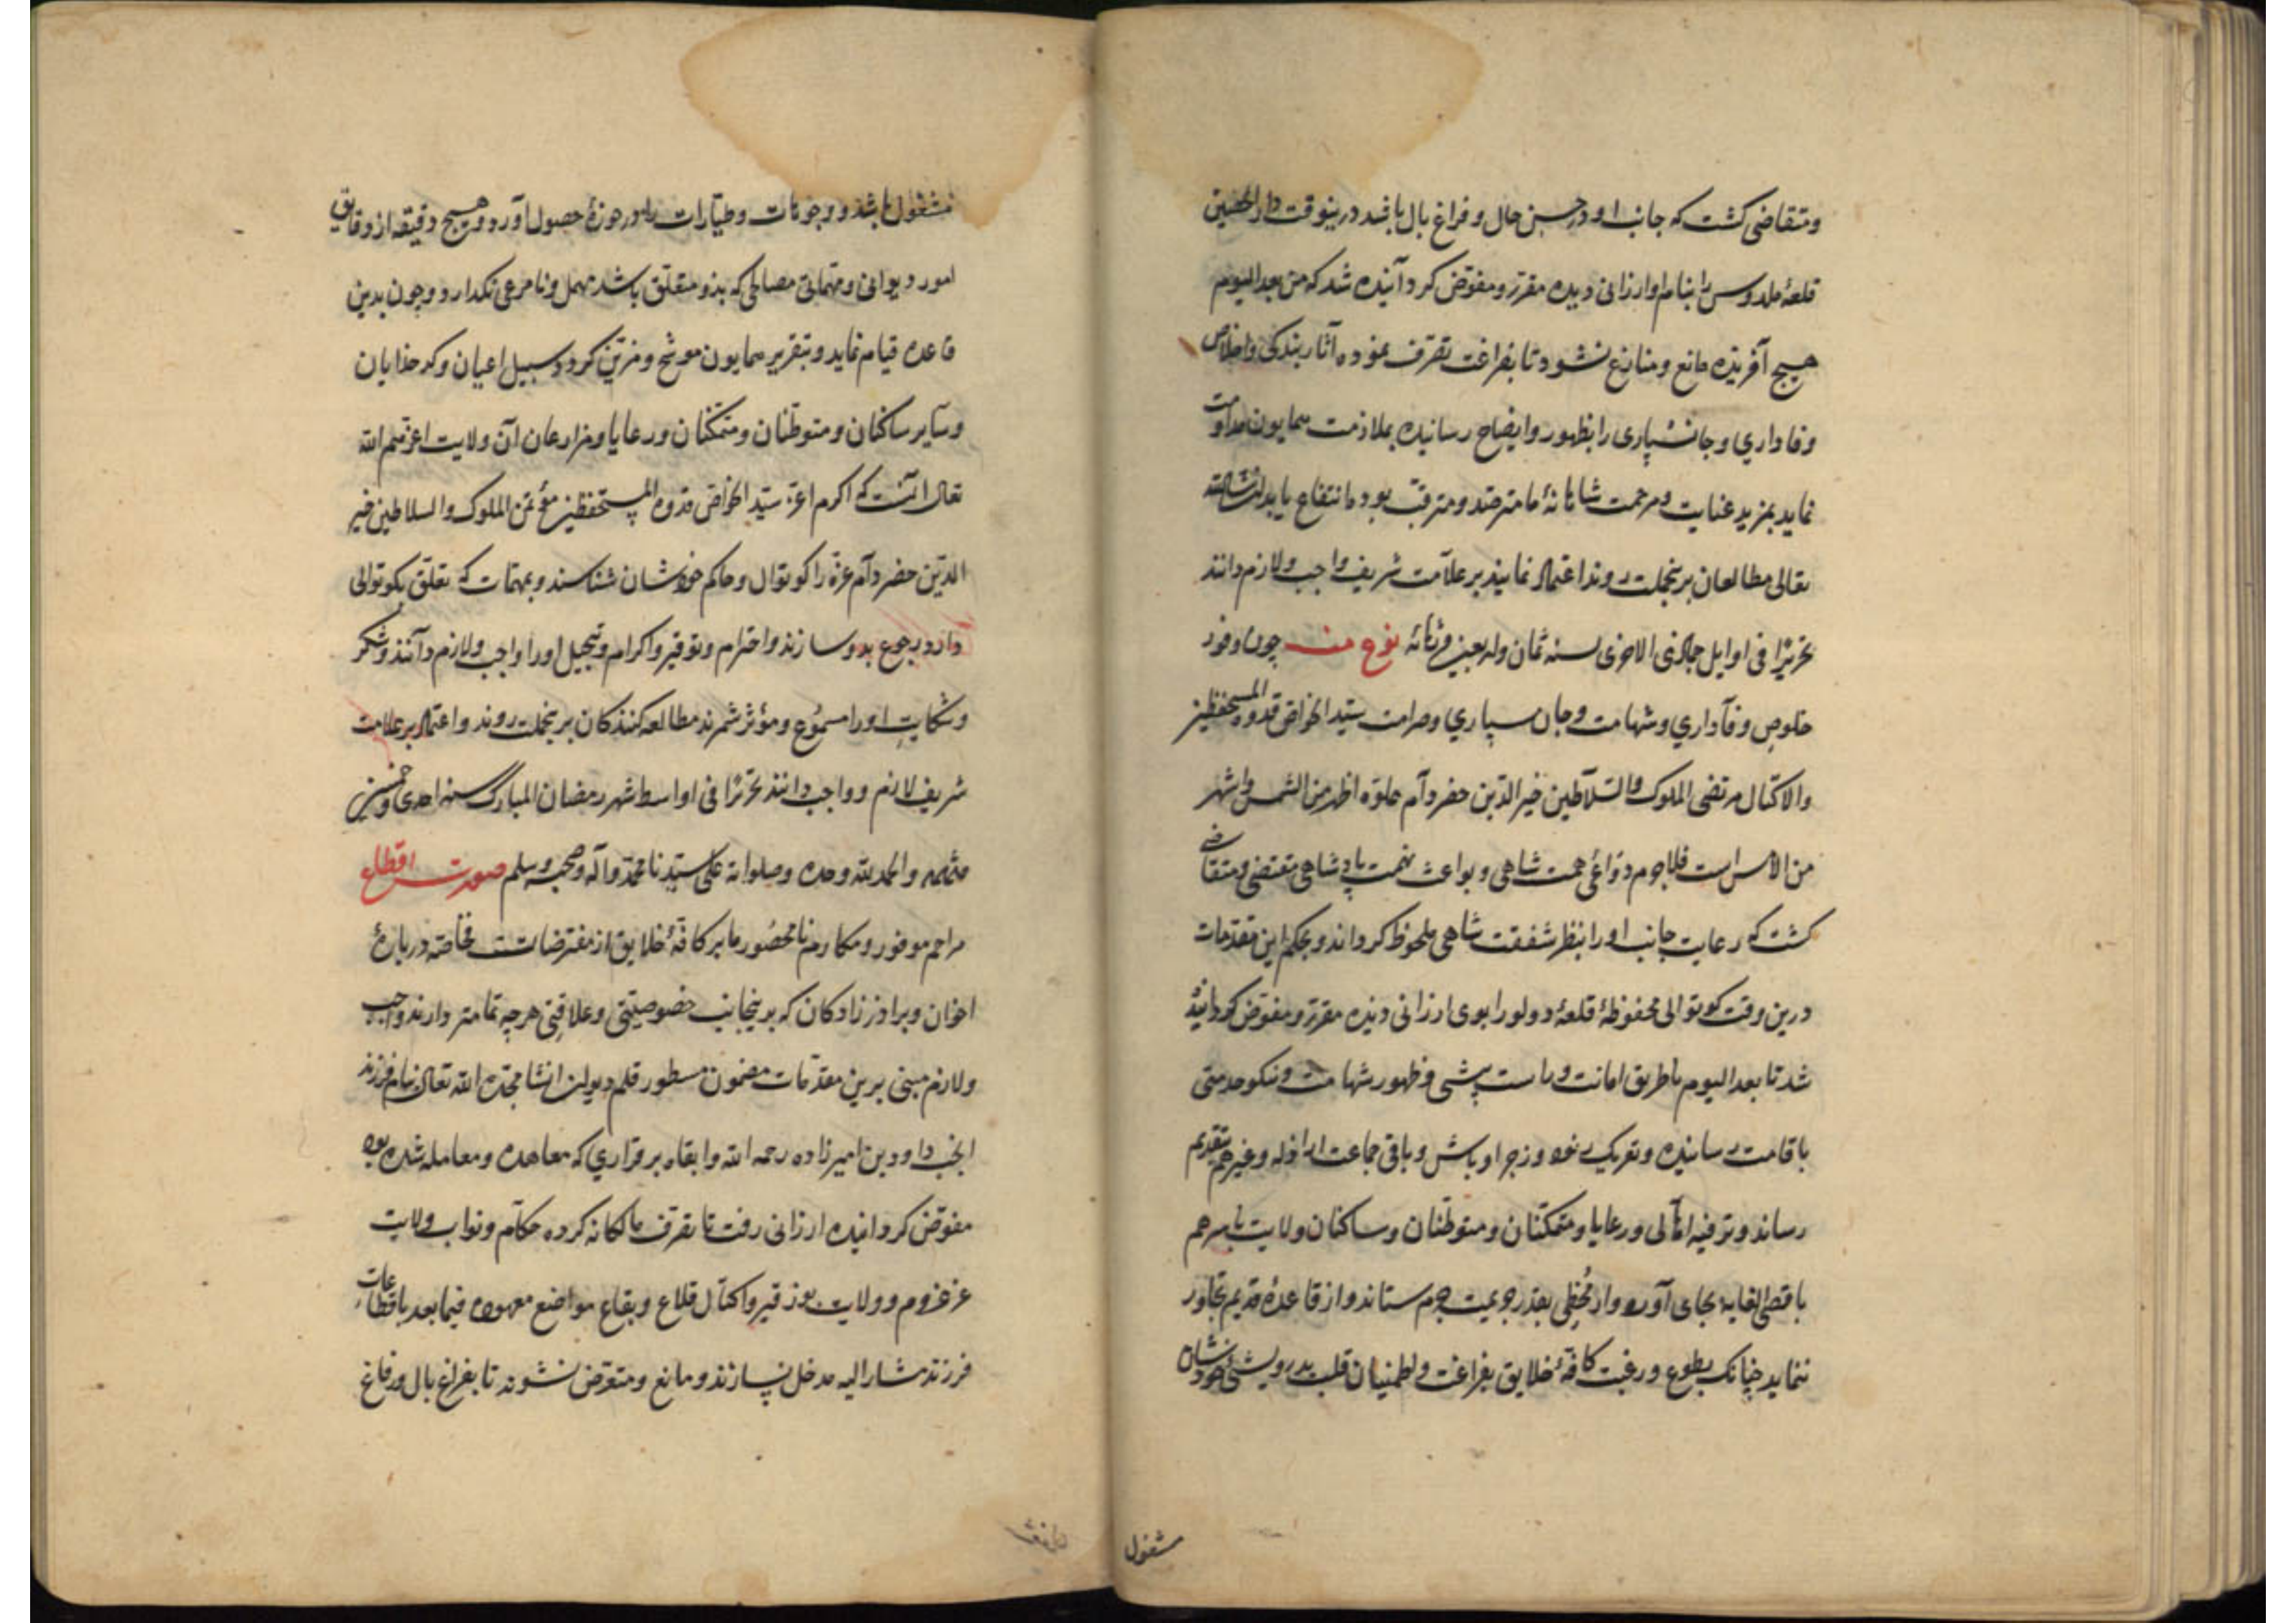 ومتقاضی کشت که جانب او در حسن حال و فراغ بال باشد درینوقت دار الحصین
قلعهٔ ملدوس را بنام او ارزانی دیده مقرر و مفوّض کردآنیده شد که من بعد الیوم
هیچ آفریده مانع و منازع نشود تا بفراغت تصرّف نموده آثار بندکی و اخلاص
وفاداري و جانسپاری را بظهور و ایضاح رسانیده بملازمت همایون مداومت
نماید بمزید عنایت و مرحمت شاهانهٔ ما مترصّد و مترقّب بود ما انتفاع یابد انشاالله
تعالی مطالعان برینجملت روند اعتماد نمایند بر علآمت شریف واجب و لازم دانند
تحریرًا فی اوایل جمادی الاخری لسنه ثمان و اربعین وثمانه نوع منه چون وفور
خلوص وفآداري و شهامت و جان سپاري و صرامت سیّد الخواصّ قدوه المستحفظین
والاکتال مرتضی الملوک والسّلآطین خیر الدّین خضر دآم علوّه اظهر من الشمس و اشهر
من الامس است فلاجرم دوٓاعی همت شاهی و بواعث نهمت پادشاهی مقتضی و متقاضی
کشت که رعایت جانب او را بنظر شفقت شاهی ملحوظ کرداند و بحکم این مقدّمات
درین وقت کوتوالی محفوظهٔ قلعهٔ دولو را بوی ارزانی دیده مقرّر و مفوّض کردانیده
شد تا بعد الیوم باطریق امانت و راست پیشی و ظهور شهامت و نیکو خدمتی
باقامت رسانیده و تعریک رنود و زجر اوباش و باقی جماعت اراذله و غیرهم بتقدیم
رساند و ترفیه اهٓالی و رعایا و متمکّنان و متوطّنان و ساکنان ولایت باسرهم
باقصی الغایه بجای آورد و از مُخطِی بقدر جریمت جرم ستاند و از قاعدهٔ قدیم تجاوز
ننماید چنانک بطوع و رغبت کافّهٔ خلایق بفراغت و اطمینان قلب بدرویشئ خودشان
مشغول
مشغول باشد و وجوهات و طیّارات را در حوزهٔ حصول آورد و هیچ دقیقه از دقایق
امور دیوانی و مهمّاتی مصالحی که بذو متعلّق باشد مهمل و نامرعی نکذارد و چون بدین
قاعده قیام نماید و بتقریر همایون موشّح و مزیّن کردد سبیل اعیان و کدخذایان
وسآیر ساکنان و متوطّنان و متمکّنان و رعایا و مزارعان آن ولایت اعزّهم الله
تعالی آنست که اکرم اعزّ سیّد الخواصّ قدوه المستحفظین مؤتمن الملوک والسلاطین خیر
الدّین خضر دآم عزّه را کوتوال و حاکم خودشان شناسند و بمهمّات که تعلّق بکوتوالی
دارد رجوع بدو سازند و احترام و توقیر و اکرام و تبجیل او را واجب و لازم دآنند و شکر
و شکایت او را مسمُوع و مؤثر شمرند مطالعه کنندکان برینجملت روند و اعتماد بر علامت
شریف لازم و واجب دانند تحریرًا فی اواسط شهر رمضان المبارک سنه احدی و خمسین
وثمانمه والحمد لله وحده وصلواته علی سیّدنا محمّد وآله وصحبه وسلم صورت اقطاع
مراحم موفور و مکارم نامحصُور ما بر کافّهٔ خلایق از مفترضاتست خاصّه دربارهٔ
اخوان و براذرزادکان که برینجانب خصوصیّتی و علاقتی هرچه تمامتر دارند واجب
و لازم مبنی برین مقدّمات مضمون مسطور قلم دیوان انشا مجّده الله تعالی بنام فرزند
انجب داود بن امیرزاده رحمه الله وابقاه بر قراري که معاهده و معامله شده بود
مفوّض کردانیده ارزانی رفت تا تصرّف مالکانه کرده حکآم و نواب ولایت
عزعزوم و ولایت بوزقیر و اکتال قلاع و بقاع مواضع معهوده فیما بعد باقطاعات
فرزند مشار الیه مدخل نسازند و مانع و متعرّض نشوند تا بفراغ بال و رفاغ